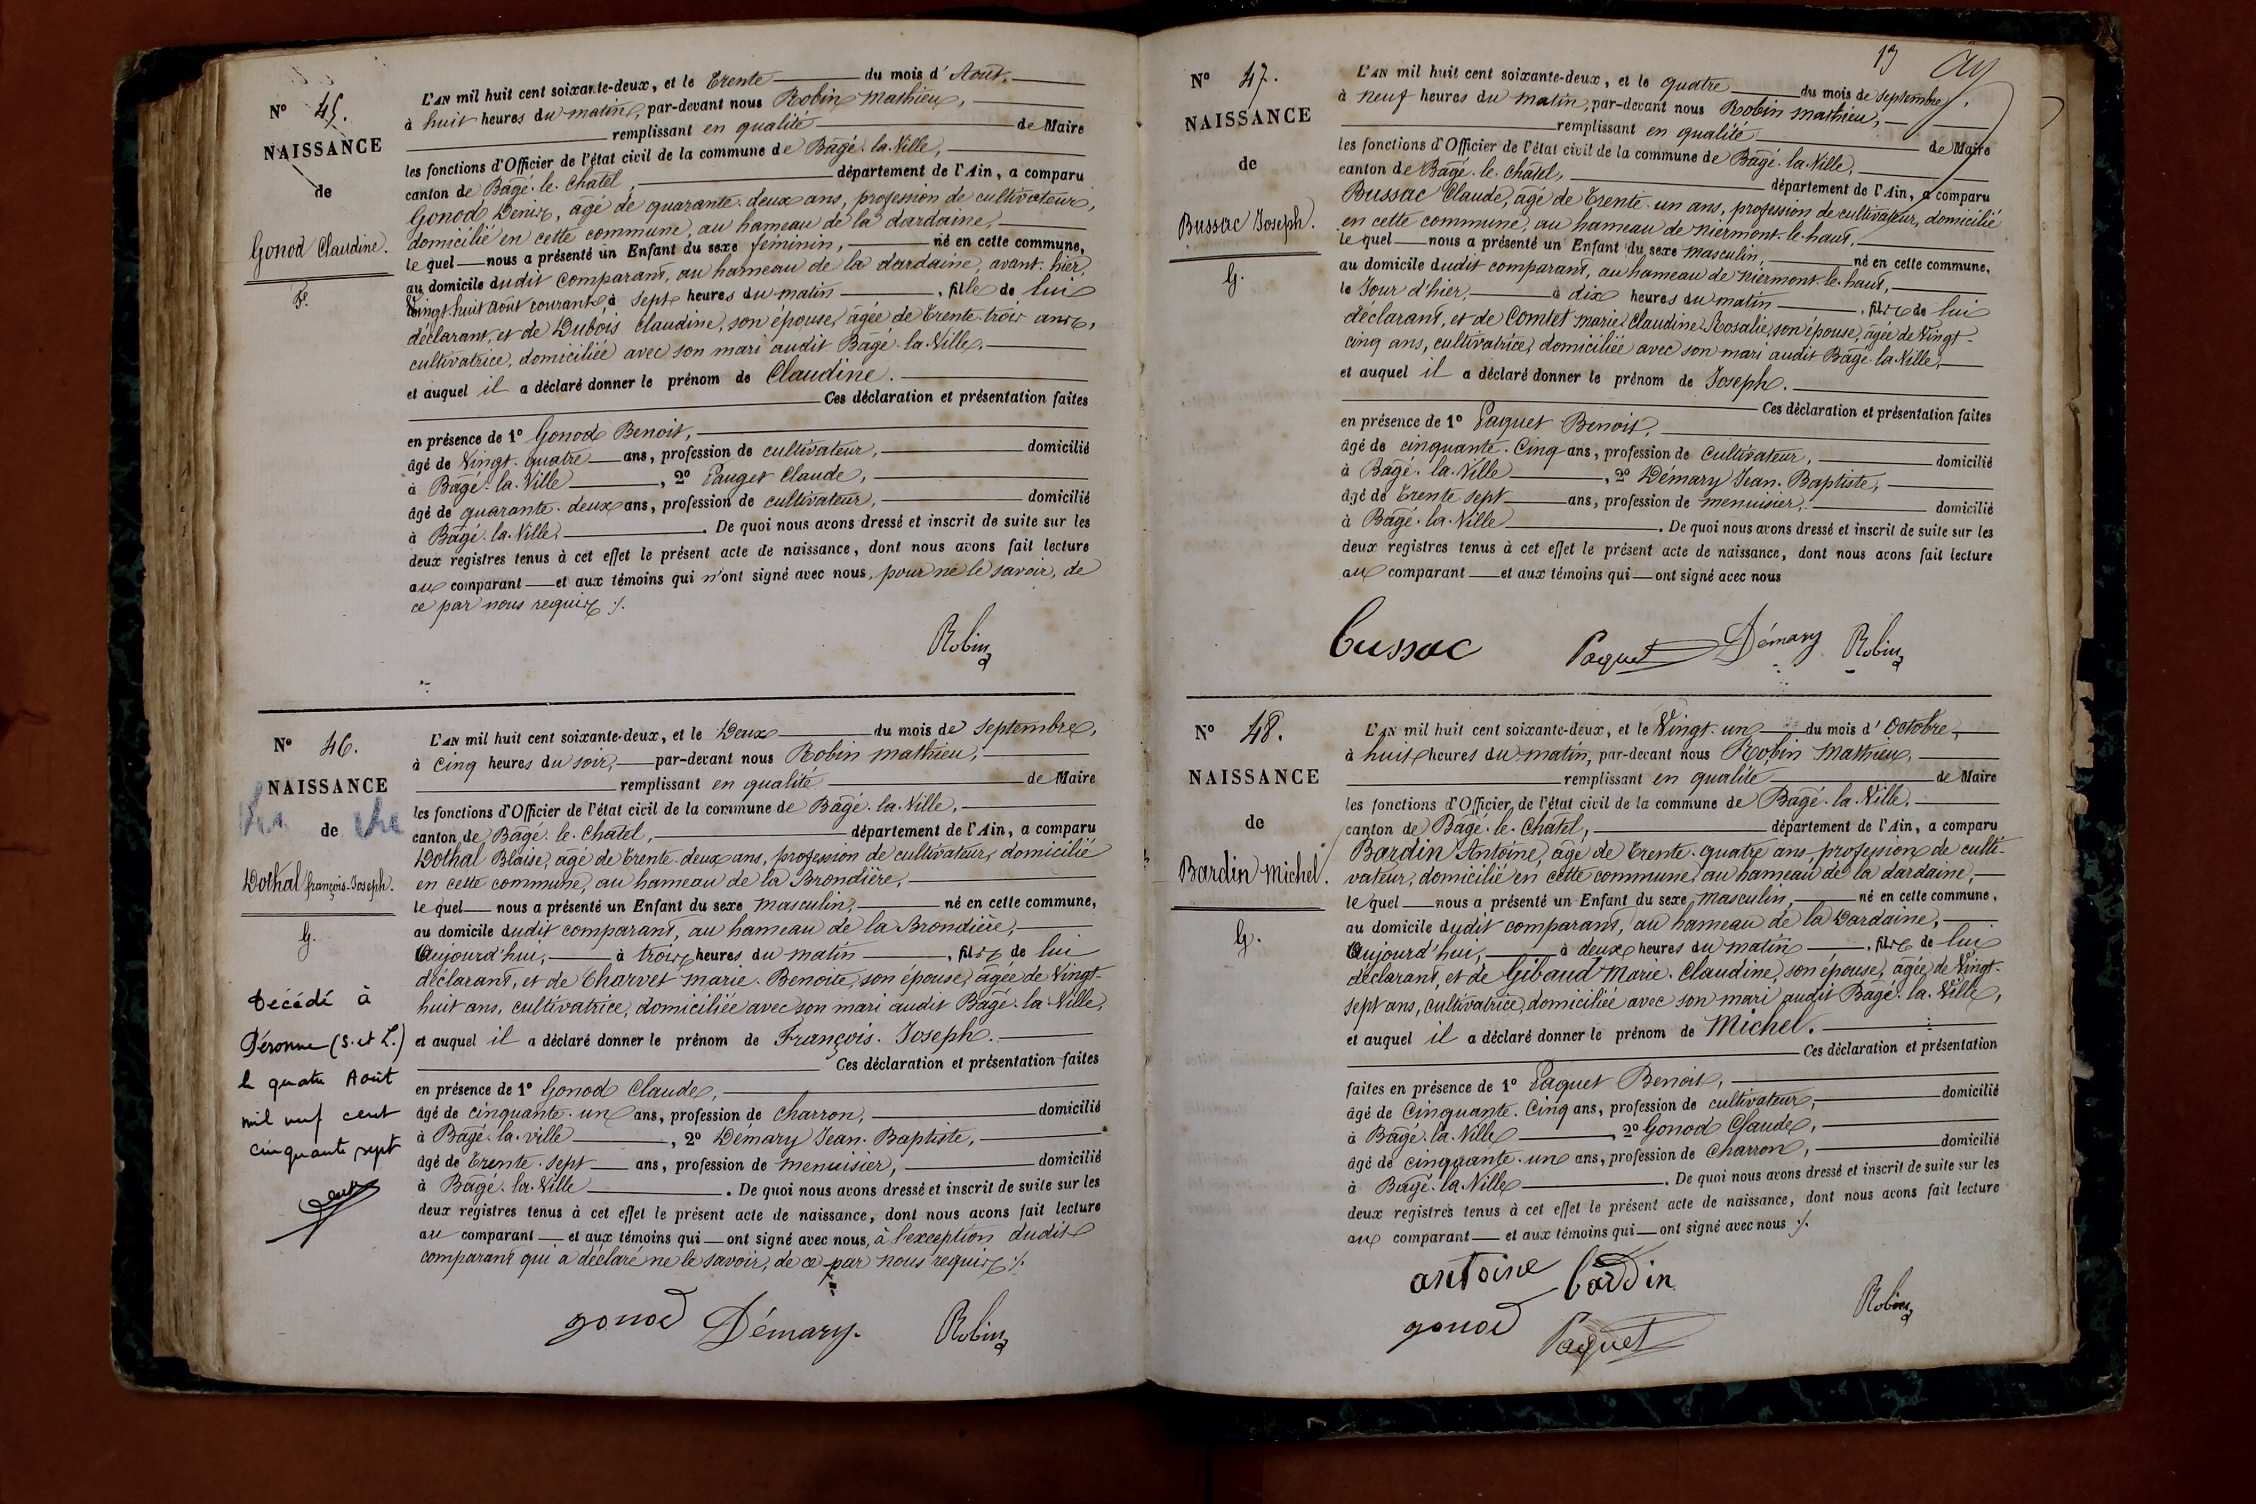 N° 45.
NAISSANCE
de
Gonod Claudine.
F.
L'AN mil huit cent soixante-deux, et le trente du mois d'Août,
à huit heures du matin, par-devant nous Robin Mathieu,
remplissant en qualité de Maire
les fonctions d'Officier de l'état civil de la commune de Bâgé-la-Ville,
canton de Bâgé-le-Châtel, département de l'Ain, a comparu
Gonod Denis, âgé de quarante-deux ans, profession de cultivateur,
domicilié en cette commune, au hameau de la dardaine,
le quel nous a présenté un Enfant du sexe féminin, né en cette commune,
au domicile dudit comparant, au hameau de la dardaine, avant-hier,
Vingt-huit août courant, à sept heures du matin, fille de lui
déclarant, et de Dubois Claudine, son épouse, âgée de trente-trois ans,
cultivatrice, domiciliée avec son mari audit Bâgé-la-Ville,
et auquel il a déclaré donner le prénom de Claudine.
Ces déclaration et présentation faites
en présence de 1° Gonod Benoit,
âgé de Vingt-quatre ans, profession de cultivateur, domicilié
à Bâgé-la-Ville, 2° Pauget Claude,
âgé de quarante-deux ans, profession de cultivateur, domicilié
à Bâgé-la-Ville. De quoi nous avons dressé et inscrit de suite sur les
deux registres tenus à cet effet le présent acte de naissance, dont nous avons fait lecture
au comparant et aux témoins qui n'ont signé avec nous, pour ne le savoir, de
ce par nous requis ./.
Robin
N° 46.
NAISSANCE
de
Dothal François-Joseph.
G.
Décédé à
Péronne (S. et L.)
le quatre Août
mil neuf cent
cinquante sept
L'AN mil huit cent soixante-deux, et le Deux du mois de septembre,
à cinq heures du soir, par-devant nous Robin Mathieu,
remplissant en qualité de Maire
les fonctions d'Officier de l'état civil de la commune de Bâgé-la-Ville,
canton de Bâgé-le-Châtel, département de l'Ain, a comparu
Dothal Blaise, âgé de trente-deux ans, profession de cultivateur, domicilié
en cette commune, au hameau de la Brondière,
le quel nous a présenté un Enfant du sexe masculin, né en cette commune,
au domicile dudit comparant, au hameau de la Brondière,
Aujourd'hui, à trois heures du matin, fils de lui
déclarant, et de Charvet Marie-Benoite, son épouse, âgée de Vingt-
huit ans, cultivatrice, domiciliée avec son mari audit Bâgé-la-Ville,
et auquel il a déclaré donner le prénom de François-Joseph.
Ces déclaration et présentation faites
en présence de 1° Gonod Claude,
âgé de cinquante-un ans, profession de charron, domicilié
à Bâgé-la-ville, 2° Démary Jean-Baptiste,
âgé de trente-sept ans, profession de menuisier, domicilié
à Bâgé-la-Ville. De quoi nous avons dressé et inscrit de suite sur les
deux registres tenus à cet effet le présent acte de naissance, dont nous avons fait lecture
au comparant et aux témoins qui ont signé avec nous, à l'exception dudit
comparant qui a déclaré ne le savoir, de ce par nous requis ./.
gonod Démary. Robin
13
N° 47.
NAISSANCE
de
Bussac Joseph.
G.
L'AN mil huit cent soixante-deux, et le quatre du mois de septembre,
à neuf heures du matin, par-devant nous Robin Mathieu,
remplissant en qualité de Maire
les fonctions d'Officier de l'état civil de la commune de Bâgé-la-Ville,
canton de Bâgé-le-Châtel, département de l'Ain, a comparu
Bussac Claude, âgé de trente-un ans, profession de cultivateur, domicilié
en cette commune, au hameau de niermont-le-haut,
le quel nous a présenté un Enfant du sexe masculin, né en cette commune,
au domicile dudit comparant, au hameau de niermont-le-haut,
le Jour d'hier, à dix heures du matin, fils de lui
déclarant, et de Comtet Marie Claudine Rosalie, son épouse, âgée de Vingt-
cinq ans, cultivatrice, domiciliée avec son mari audit Bâgé-la-Ville,
et auquel il a déclaré donner le prénom de Joseph.
Ces déclaration et présentation faites
en présence de 1° Paquet Benoit,
âgé de cinquante-Cinq ans, profession de cultivateur, domicilié
à Bâgé-la-Ville, 2° Démary Jean-Baptiste,
âgé de trente sept ans, profession de menuisier, domicilié
à Bâgé-la-Ville. De quoi nous avons dressé et inscrit de suite sur les
deux registres tenus à cet effet le présent acte de naissance, dont nous avons fait lecture
au comparant et aux témoins qui ont signé avec nous
bussac Paquet Démary Robin
N° 48.
NAISSANCE
de
Bardin Michel.
G.
L'AN mil huit cent soixante-deux, et le Vingt-un du mois d'Octobre,
à huit heures du matin, par-devant nous Robin Mathieu,
remplissant en qualité de Maire
les fonctions d'Officier de l'état civil de la commune de Bâgé-la-Ville,
canton de Bâgé-le-Châtel, département de l'Ain, a comparu
Bardin Antoine, âgé de trente-quatre ans, profession de culti-
vateur, domicilié en cette commune, au hameau de la dardaine,
le quel nous a présenté un Enfant du sexe masculin, né en cette commune,
au domicile dudit comparant, au hameau de la Dardaine,
Aujourd'hui, à deux heures du matin, fils de lui
déclarant, et de Gibaud Marie-Claudine, son épouse, âgée de Vingt-
sept ans, cultivatrice, domiciliée avec son mari audit Bâgé-la-Ville,
et auquel il a déclaré donner le prénom de Michel.
Ces déclaration et présentation
faites en présence de 1° Paquet Benoit,
âgé de Cinquante-Cinq ans, profession de cultivateur, domicilié
à Bâgé-la-Ville, 2° Gonod Claude,
âgé de cinquante-un ans, profession de Charron, domicilié
à Bâgé-la-Ville. De quoi nous avons dressé et inscrit de suite sur les
deux registres tenus à cet effet le présent acte de naissance, dont nous avons fait lecture
au comparant et aux témoins qui ont signé avec nous ./.
antoine bardin
gonod Paquet Robin